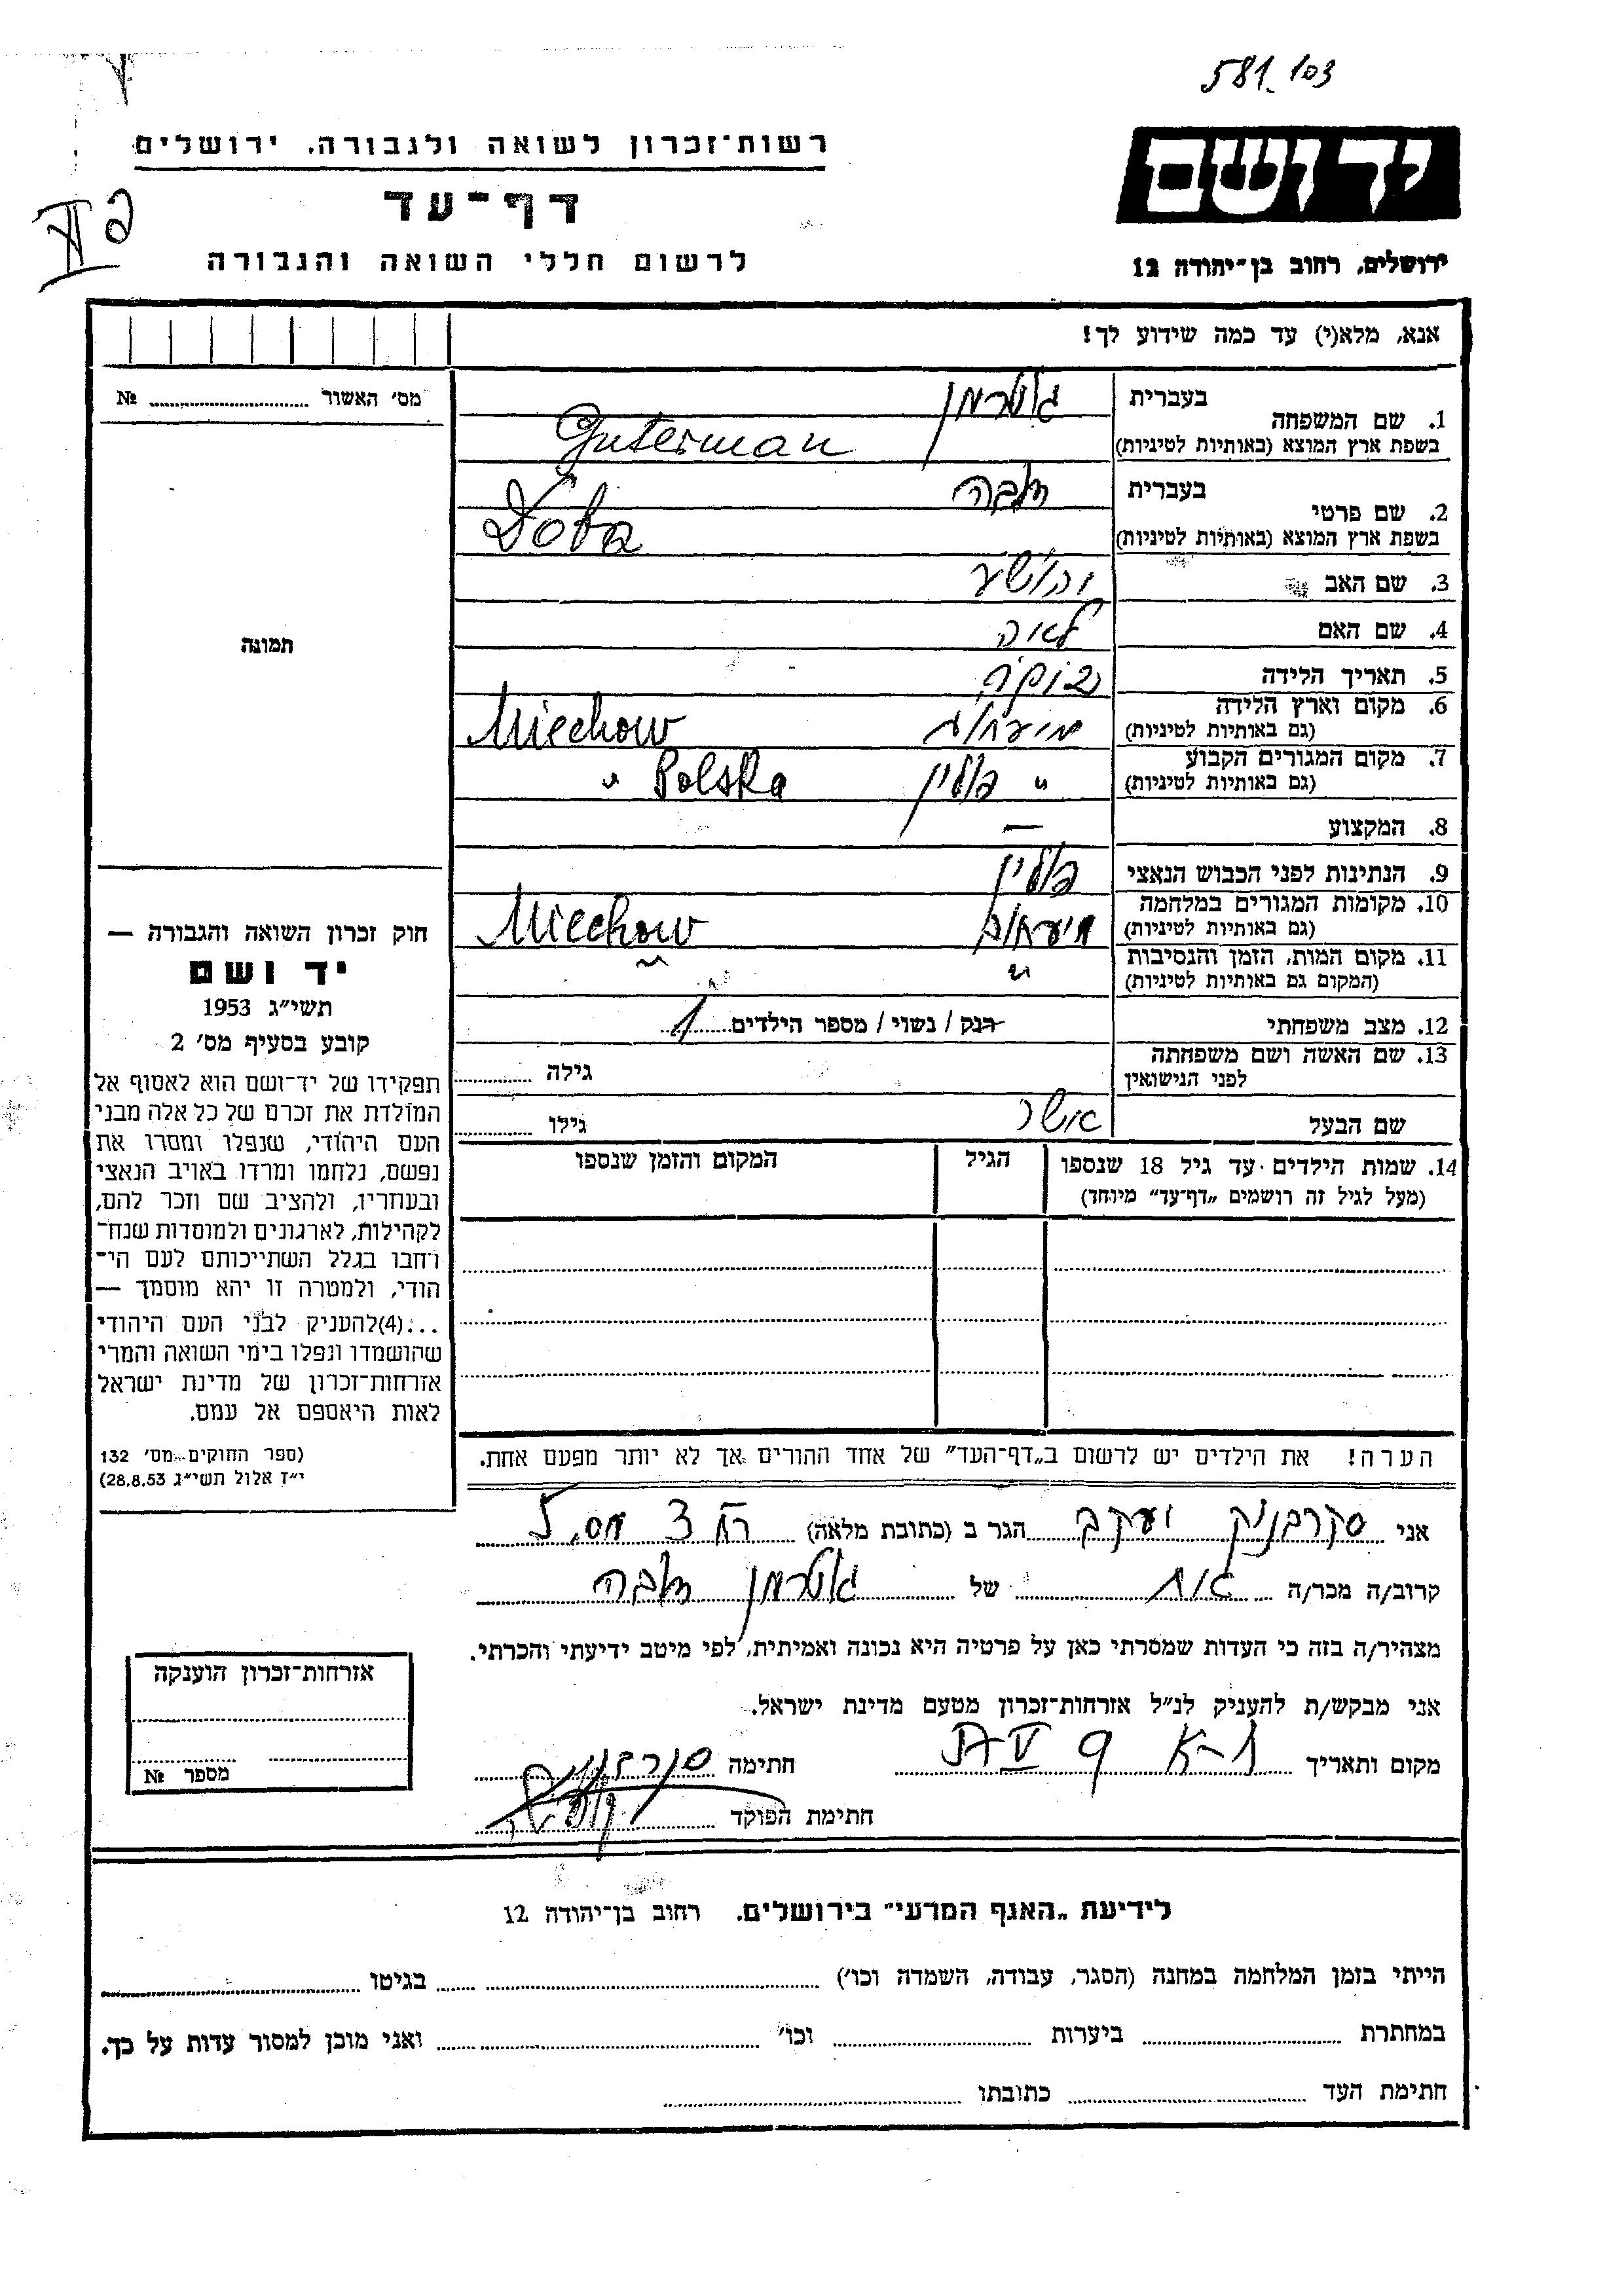 581 103
רשות־זכרון לשואה ולגבורה. ירושלים
יד ושם
דף־עד
לרשום חללי השואה והגבורה
ירושלים, רחוב בן־יהודה 12
אנא, מלא(י) עד כמה שידוע לך!
מס׳ האשור № 
1. שם המשפחה
בעברית גוטרמן
בשפת ארץ המוצא (באותיות לטיניות) Guterman
2. שם פרטי
בעברית דובה
בשפת ארץ המוצא (באותיות לטיניות) Doba
3. שם האב יהושע
4. שם האם לאה
5. תאריך הלידה
6. מקום וארץ הלידה Miechow
(גם באותיות לטיניות)
7. מקום המגורים הקבוע " פולין " Polska
(גם באותיות לטיניות)
8. המקצוע —
9. הנתינות לפני הכבוש הנאצי פולין
10. מקומות המגורים במלחמה Miechow
(גם באותיות לטיניות)
11. מקום המות, הזמן והנסיבות "
(המקום גם באותיות לטיניות)
12. מצב משפחתי רנק / נשוי / מספר הילדים 1
13. שם האשה ושם משפחתה גילה
לפני הנישואין
שם הבעל אשר גילו
14. שמות הילדים עד גיל 18 שנספו הגיל המקום והזמן שנספו
(מעל לגיל זה רושמים „דף־עד״ מיוחד)
הערה! את הילדים יש לרשום ב„דף־העד״ של אחד ההורים אך לא יותר מפעם אחת.
תמונה
חוק זכרון השואה והגבורה —
יד ושם
תשי״ג 1953
קובע בסעיף מס׳ 2
תפקידו של יד־ושם הוא לאסוף אל
המולדת את זכרם של כל אלה מבני
העם היהודי, שנפלו ומסרו את
נפשם, נלחמו ומרדו באויב הנאצי
ובעוזריו, ולהציב שם וזכר להם,
לקהילות, לארגונים ולמוסדות שנח־
רבו בגלל השתייכותם לעם הי־
הודי, ולמטרה זו יהא מוסמך —
...(4) להעניק לבני העם היהודי
שהושמדו ונפלו בימי השואה והמרי
אזרחות־זכרון של מדינת ישראל
לאות היאספם אל עמם.
(ספר החוקים מס׳ 132
י״ז אלול תשי״ג 28.8.53)
אני סקרבניק יעקב הגר ב (כתובת מלאה)
קרוב/ה מכר/ה של גוטרמן דובה
מצהיר/ה בזה כי העדות שמסרתי כאן על פרטיה היא נכונה ואמיתית, לפי מיטב ידיעתי והכרתי.
אני מבקש/ת להעניק לנ״ל אזרחות־זכרון מטעם מדינת ישראל.
מקום ותאריך חתימה
חתימת הפוקד
אזרחות־זכרון הוענקה
מספר №
לידיעת „האגף המדעי״ בירושלים. רחוב בן־יהודה 12
הייתי בזמן המלחמה במחנה (הסגר, עבודה, השמדה וכו׳) בגיטו
במחתרת ביערות וכו׳ ואני מוכן למסור עדות על כך.
חתימת העד כתובתו